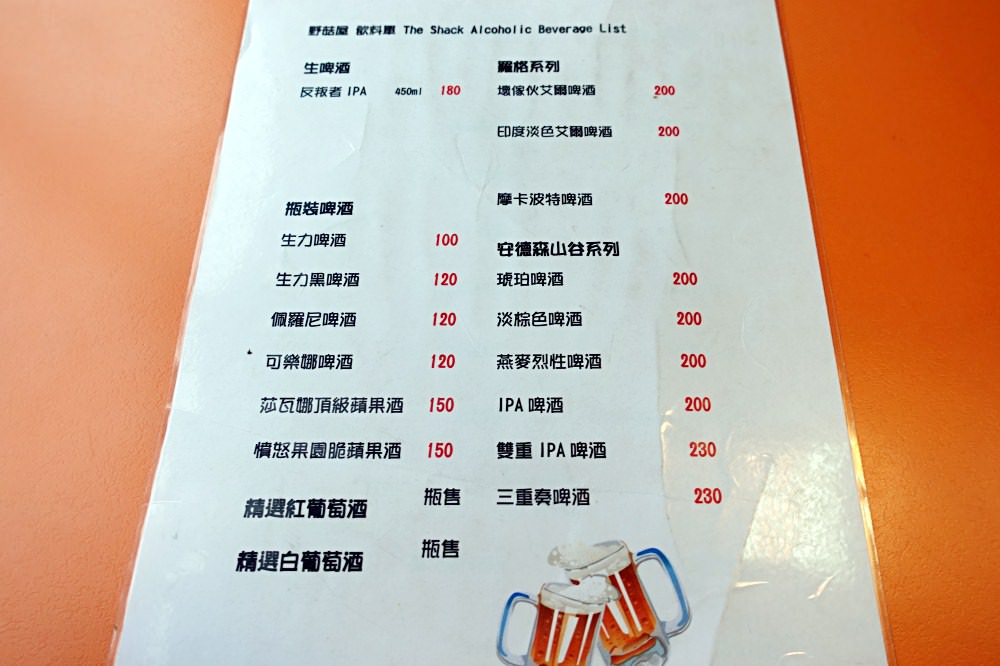 野菇屋 飲料單 The Shack Alcoholic Beverage List
生啤酒
反叛者 IPA 450ml 180
瓶裝啤酒
生力啤酒 100
生力黑啤酒 120
佩羅尼啤酒 120
可樂娜啤酒 120
莎瓦娜頂級蘋果酒 150
憤怒果園脆蘋果酒 150
精選紅葡萄酒 瓶售
精選白葡萄酒 瓶售
羅格系列
壞傢伙艾爾啤酒 200
印度淡色艾爾啤酒 200
摩卡波特啤酒 200
安德森山谷系列
琥珀啤酒 200
淡棕色啤酒 200
燕麥烈性啤酒 200
IPA 啤酒 200
雙重 IPA 啤酒 230
三重奏啤酒 230